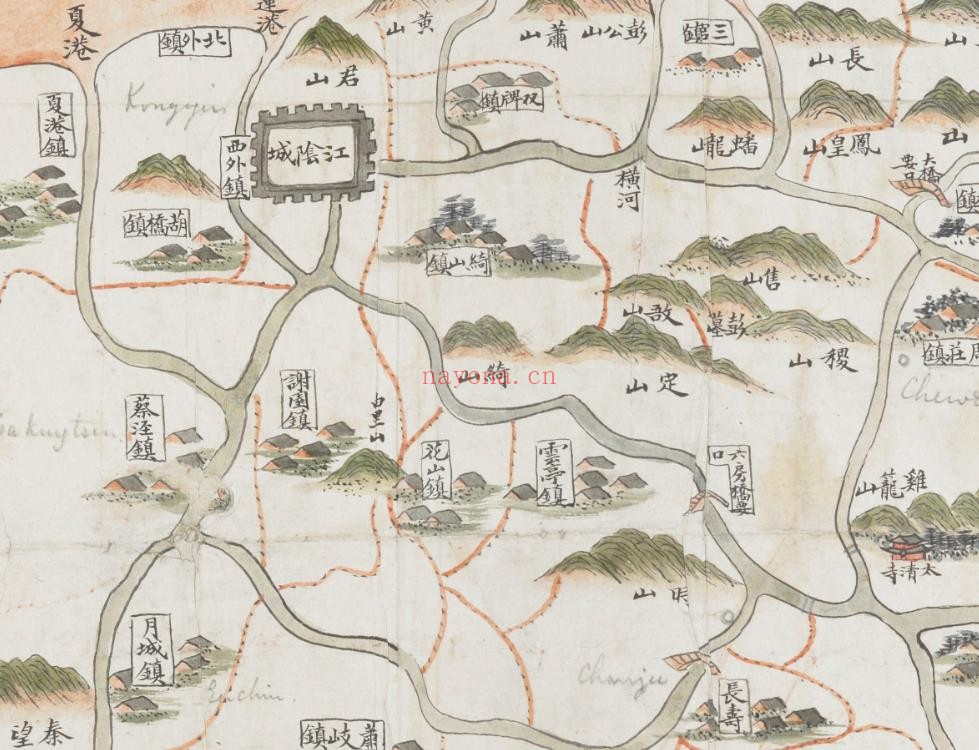 夏港
北外鎮
君山
黃山
蕭山
彭公山
長山
山
夏港鎮
Kongyin
西外鎮
江陰城
双牌鎮
蟠龍山
鳳皇山
山
大橋要口
橫河
胡橋鎮
綺山鎮
鎮
售山
敔山
彭墓
稷山
周莊鎮
綺山
定山
nayona.cn
謝園鎮
由里山
蔡涇鎮
花山鎮
雲亭鎮
六房橋要口
雞籠山
太清寺
山
月城鎮
長壽
秦望
蕭岐鎮